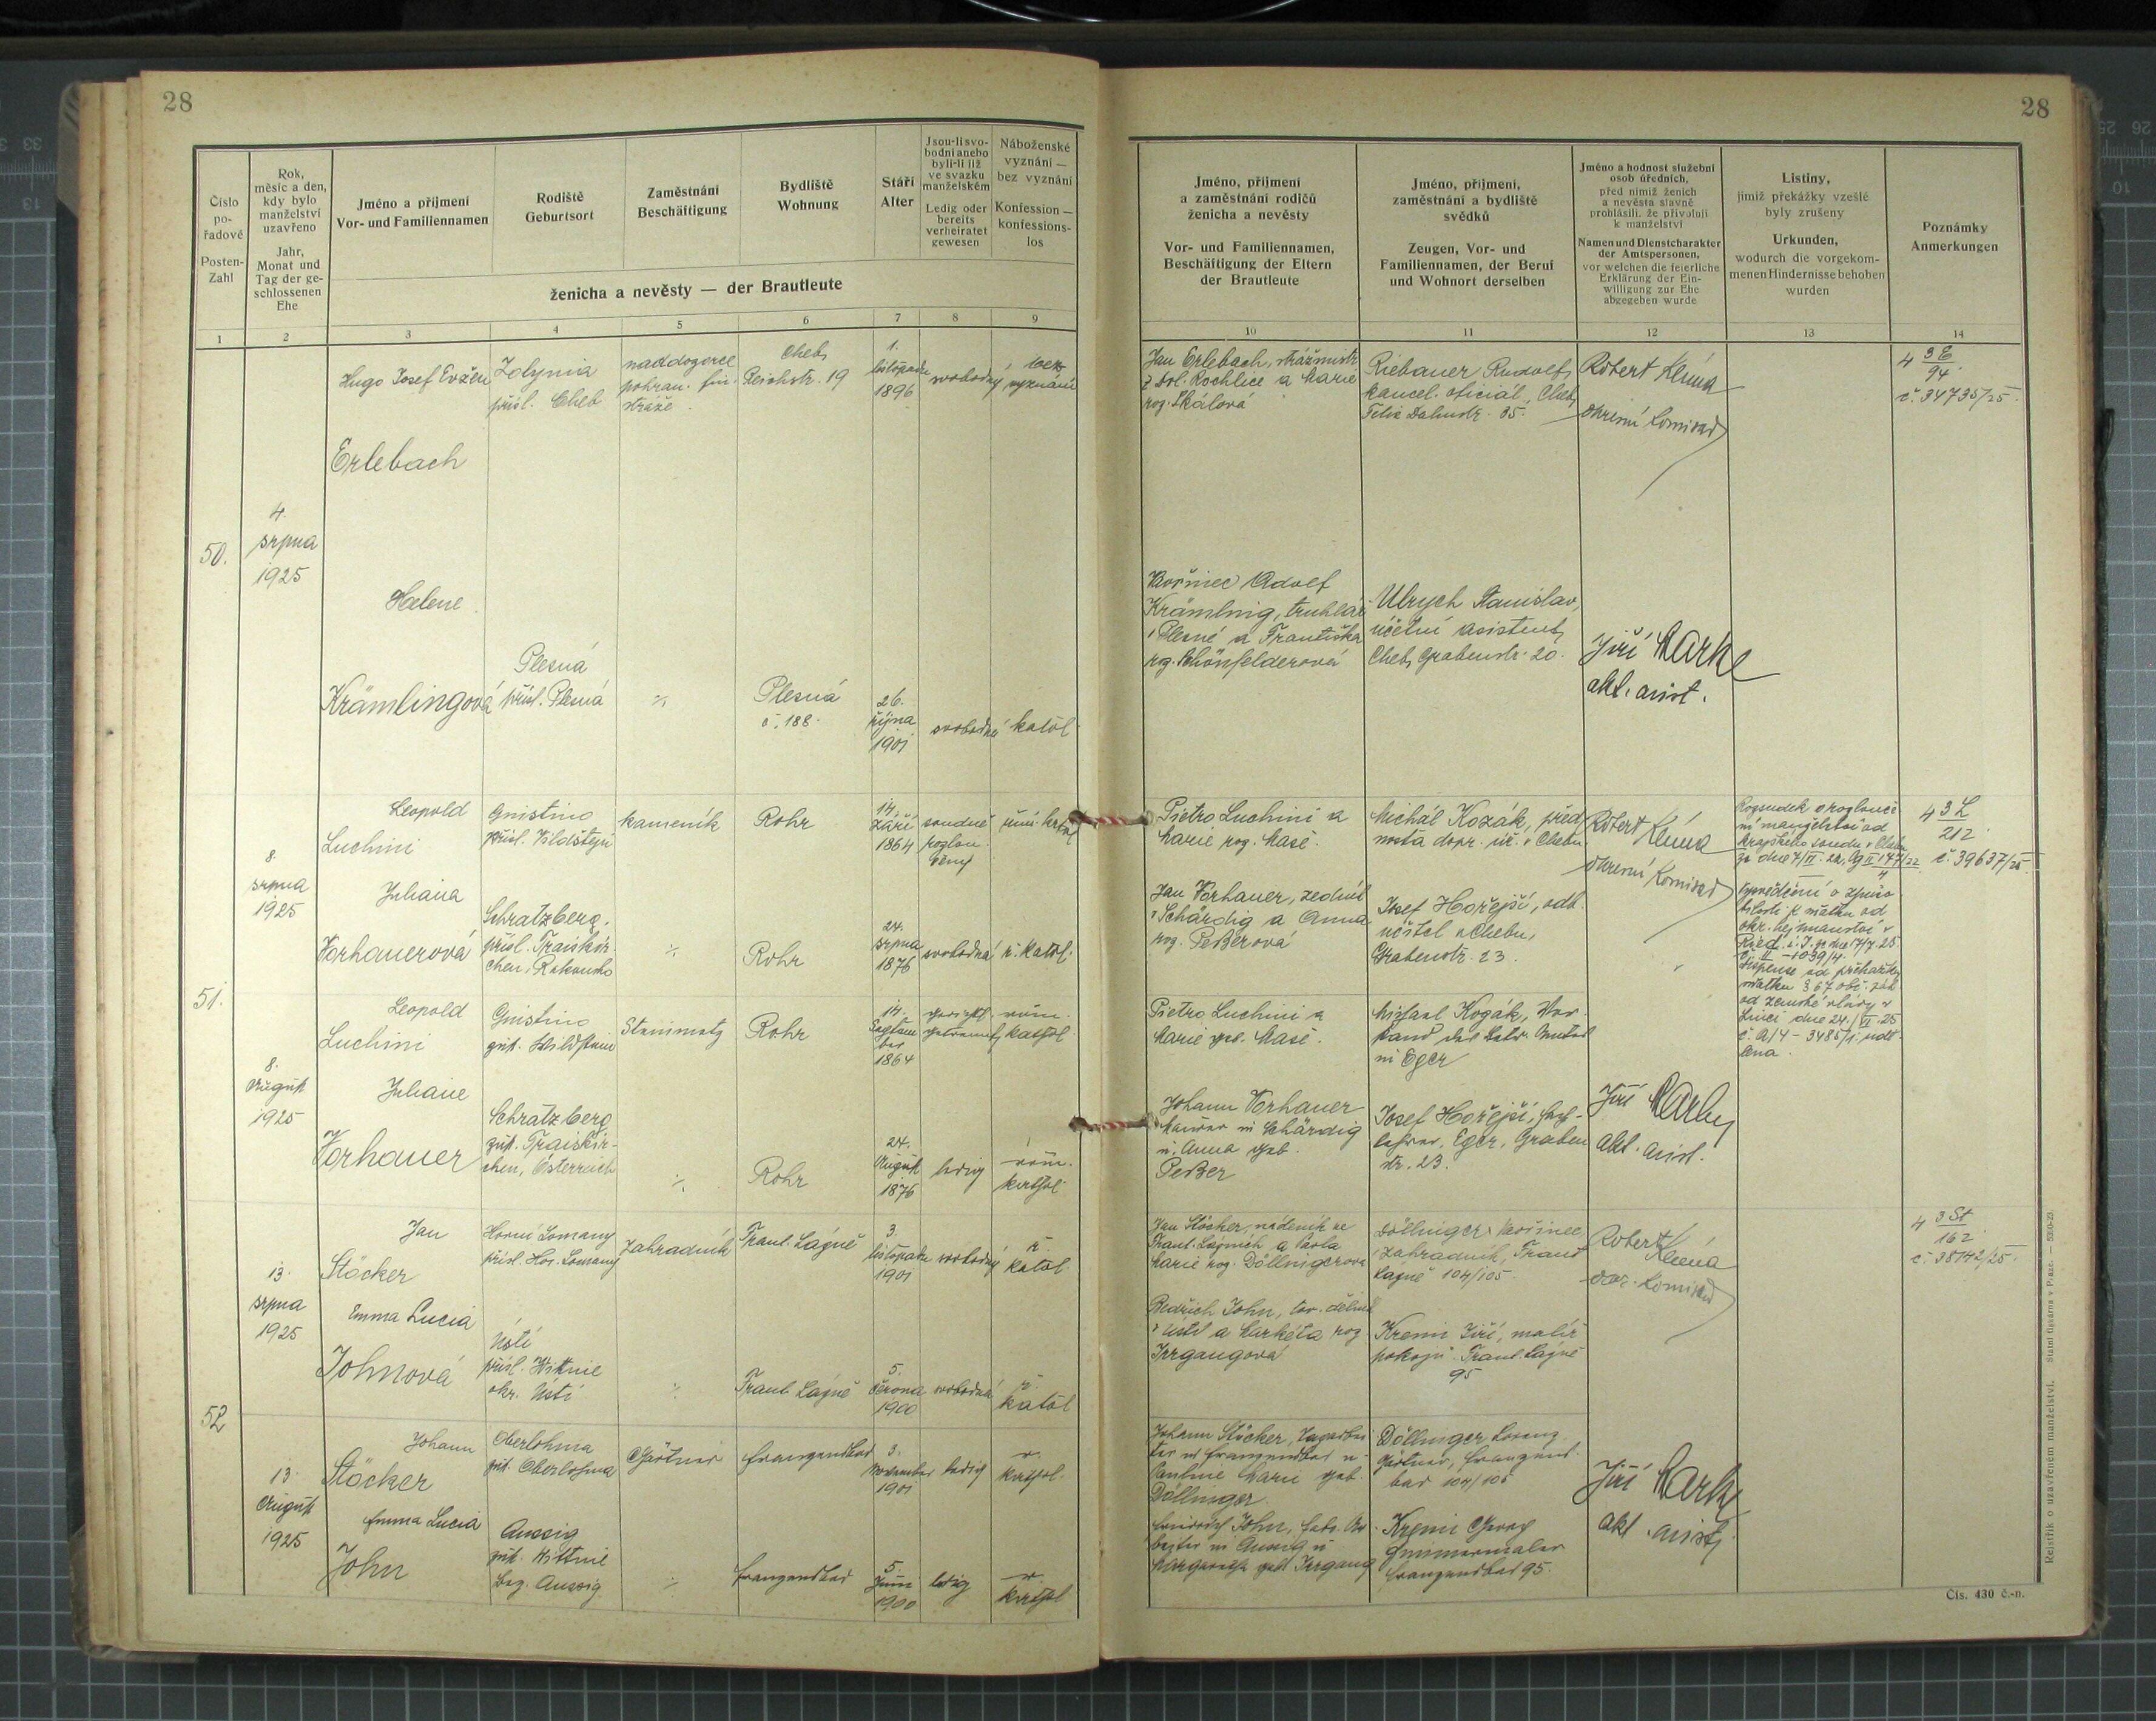 28
28
Číslo
po-
řadové
Posten-
Zahl
Rok,
měsíc a den,
kdy bylo
manželství
uzavřeno
Jahr,
Monat und
Tag der ge-
schlossenen
Ehe
Jméno a příjmení
Vor- und Familiennamen
Rodiště
Geburtsort
Zaměstnání
Beschäftigung
Bydliště
Wohnung
Stáří
Alter
Jsou-li svo-
bodni anebo
byli-li již
ve svazku
manželském
Ledig oder
bereits
verheiratet
gewesen
Náboženské
vyznání —
bez vyznání
Konfession —
konfessions-
los
ženicha a nevěsty — der Brautleute
1 2 3 4 5 6 7 8 9
Jméno, příjmení
a zaměstnání rodičů
ženicha a nevěsty
Vor- und Familiennamen,
Beschäftigung der Eltern
der Brautleute
Jméno, příjmení,
zaměstnání a bydliště
svědků
Zeugen, Vor- und
Familiennamen, der Beruf
und Wohnort derselben
Jméno a hodnost služební
osob úředních,
před nimiž ženich
a nevěsta slavně
prohlásili, že přivolují
k manželství
Namen und Dienstcharakter
der Amtspersonen,
vor welchen die feierliche
Erklärung der Ein-
willigung zur Ehe
abgegeben wurde
Listiny,
jimiž překážky vzešlé
byly zrušeny
Urkunden,
wodurch die vorgekom-
menen Hindernisse behoben
wurden
Poznámky
Anmerkungen
10 11 12 13 14
50.
4.
srpna
1925
Hugo Josef Evžen
Erlebach
Zolynia
přísl. Cheb
naddozorce
pohran. fin.
stráže
Cheb,
Reichstr. 19
1.
listopadu
1896
svobodný
bez
vyznání
Jan Erlebach, strážmistr
z Dol. Rochlice a Marie
roz. Skálová
Riebauer Rudolf,
kancel. oficiál, Cheb,
Felix Dahnstr. 35.
Robert Klíma
okresní komisař
4 3E
94
č. 34735/25.
Helene
Krämlingová
Plesná
přísl. Plesná
./.
Plesná
č. 188.
26.
října
1901
svobodná
katol.
Vavřinec Adolf
Krämling, truhlář
v Plesné a Františka
roz. Schönfelderová
Ulrych Stanislav,
účetní asistent,
Cheb, Grabenstr. 20.
Jiří
akt. asist.
51.
8.
srpna
1925
Leopold
Luchini
přísl. Vildštejn
kameník
Rohr
14.
září
1864
soudně
rozlou-
čený
Pietro Luchini a
Marie roz. Masé.
Michál Kozák, před
nosta dopr. úř. v Chebu
Robert Klíma
okresní komisař
Rozsudek o rozlouče
ní manželství od
krajského soudu v Chebu
4 3L
212
č. 39637/25.
Juliana
Vorhauerová
Schratzberg,
přísl. Traiskir-
chen, Rakousko
./.
Rohr
24.
srpna
1876
svobodná
ř. katol.
Jan Vorhauer, zedník
v Schärdig a Anna
roz. Peßerová
Josef Hořejší, odb.
učitel v Chebu,
Grabenstr. 23.
Vysvědčení o způso
bilosti k sňatku od
okr. hejtmanství v
Ried i. I. ze dne 17/7. 25
č. II - 1039/4.
Dispense od překážky
sňatku § 67 obč. zák.
od zemské vlády v
Linci dne 24./VII. 25
č. A/4 - 3485/1. udě
lena.
8.
August
1925
Leopold
Luchini
zust. Wildstein
Steinmetz
Rohr
14.
Septem
ber
1864
gerichtl.
getrennt
röm.
kathol.
Pietro Luchini u
Marie geb. Masé.
Michael Kozák, Vor
stand des Betr. Amtes
in Eger
Juliane
Vorhauer
Schratzberg
zust. Traiskir-
chen, Österreich
./.
Rohr
24.
August
1876
ledig
röm.
kathol.
Johann Vorhauer
Maurer in Schärdig
u. Anna geb.
Peßer
Josef Hořejší, Fach-
lehrer, Eger, Graben
str. 23.
Jiří
akt. asist.
52
13.
srpna
1925
Jan
Stöcker
Horní Lomany
přísl. Hor. Lomany
zahradník
Frant. Lázně
3.
listopadu
1901
svobodný
ř.
katol.
Jan Stöcker, nádeník ve
Frant. Lázních a Pavla
Marie roz. Döllingerová
Döllinger Vavřinec
zahradník, Frant
Lázně 104/105.
Robert Klíma
okr. komisař
4 3St
162
č. 38142/25.
Emma Lucia
Johnová
Ústí
přísl. Wittine
okr. Ústí
./.
Frant. Lázně
5.
června
1900
svobodná
ř.
katol
Bedřich John, tov. dělník
v Ústí a Markéta roz.
Irrgangová
Kremi Jiří, malíř
pokojů Frant. Lázně
95
13.
August
1925
Johann
Stöcker
Oberlohma
zust. Oberlohma
Gärtner
Franzensbad
3.
November
1901
ledig
r.
kathol.
Johann Stöcker, Tagarbei
ter in Franzensbad u
Pauline Marie geb.
Döllinger.
Döllinger Lorenz
Gärtner, Franzens
bad 104/105
Jiří
akt. asist.
Emma Lucia
John
Aussig
zust. Wittine
Bez. Aussig
./.
Franzensbad
5.
Juni
1900
ledig
r.
kathol
Friedrich John, Fabr. Ar
beiter in Aussig u
Margaretha geb. Irrgang
Kremi Georg
Zimmermaler
Franzensbad 95.
Rejstřík o uzavřeném manželství. Státní tiskárna v Praze. — 5310-23.
Čís. 430 č.-n.